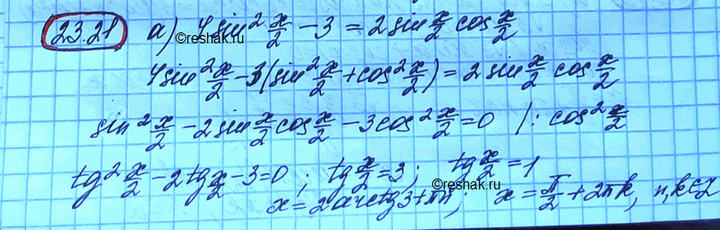 23.21 а) 4sin² x/2 - 3 = 2 sin x/2 cos x/2
©reshak.ru
4sin² x/2 - 3(sin² x/2 + cos² x/2) = 2 sin x/2 cos x/2
sin² x/2 - 2sin x/2 cos x/2 - 3cos² x/2 = 0 /: cos² x/2
tg² x/2 - 2tg x/2 - 3 = 0 ; tg x/2 = 3 ; tg x/2 = 1
©reshak.ru
x = 2arctg3 + πn ; x = π/2 + 2πk, n, k ∈ Z